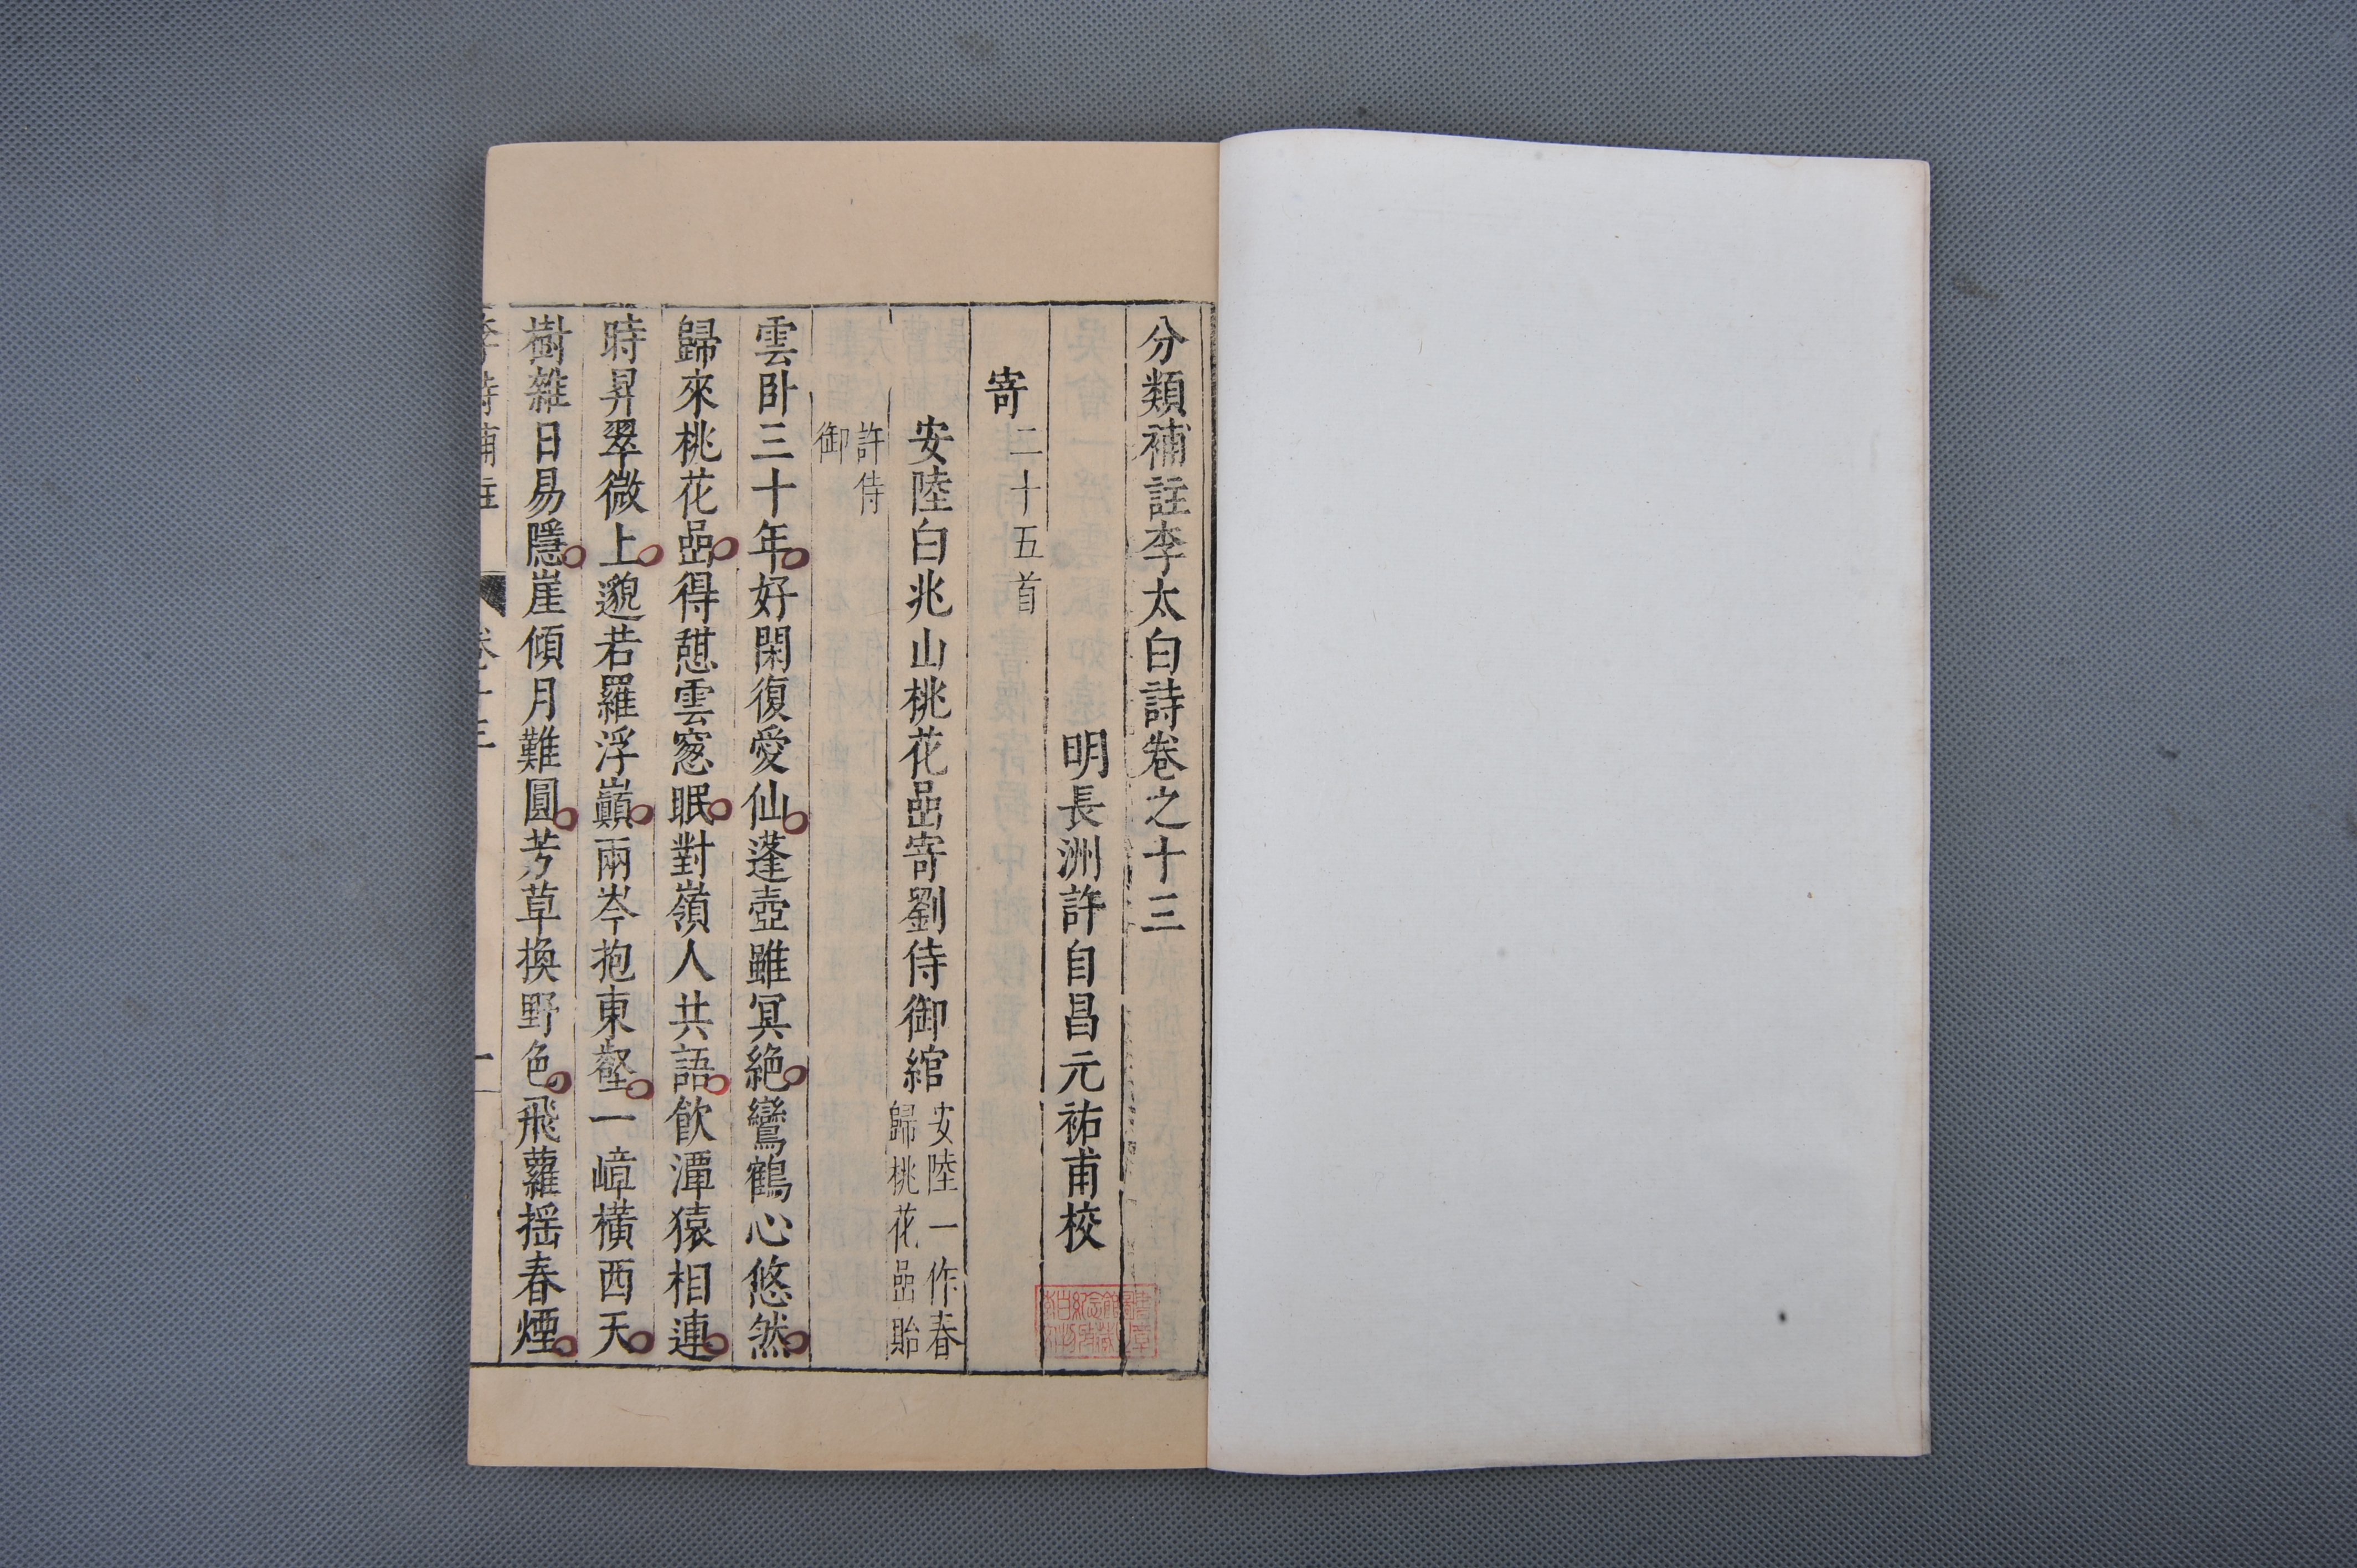 分類補註李太白詩卷之十三
明長洲許自昌元祐甫校
寄二十五首
安陸白兆山桃花嵒寄劉侍御綰安陸一作春
歸桃花嵒貽
許侍
御
雲卧三十年好閑復愛仙蓬壺雖冥絶鸞鶴心悠然
歸來桃花嵒得憇雲窻眠對嶺人共語飲潭猿相連
時昇翠微上邈若羅浮巔兩岑抱東壑一嶂橫西天
樹雜日易隱崖傾月難圓芳草換野色飛蘿揺春煙
李詩補註 卷十三 一